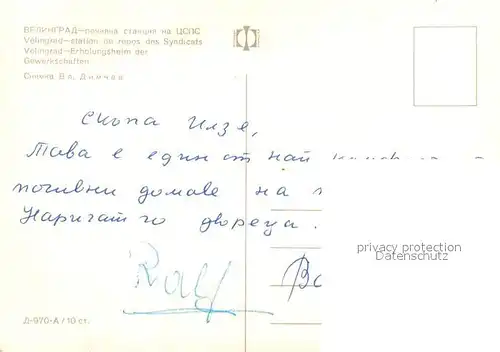 ВЕЛИНГРАД—почивна станция на ЦСПС
Velingrad—station de repos des Syndicats
Velingrad—Erholungsheim der
Gewerkschaften
Снимка Вл. Димчев
Скъпа Илзе,
Това е един от най
почивни домове на
Наричат го двореца.
Ralf
privacy protection
Datenschutz
Д-970-А / 10 ст.